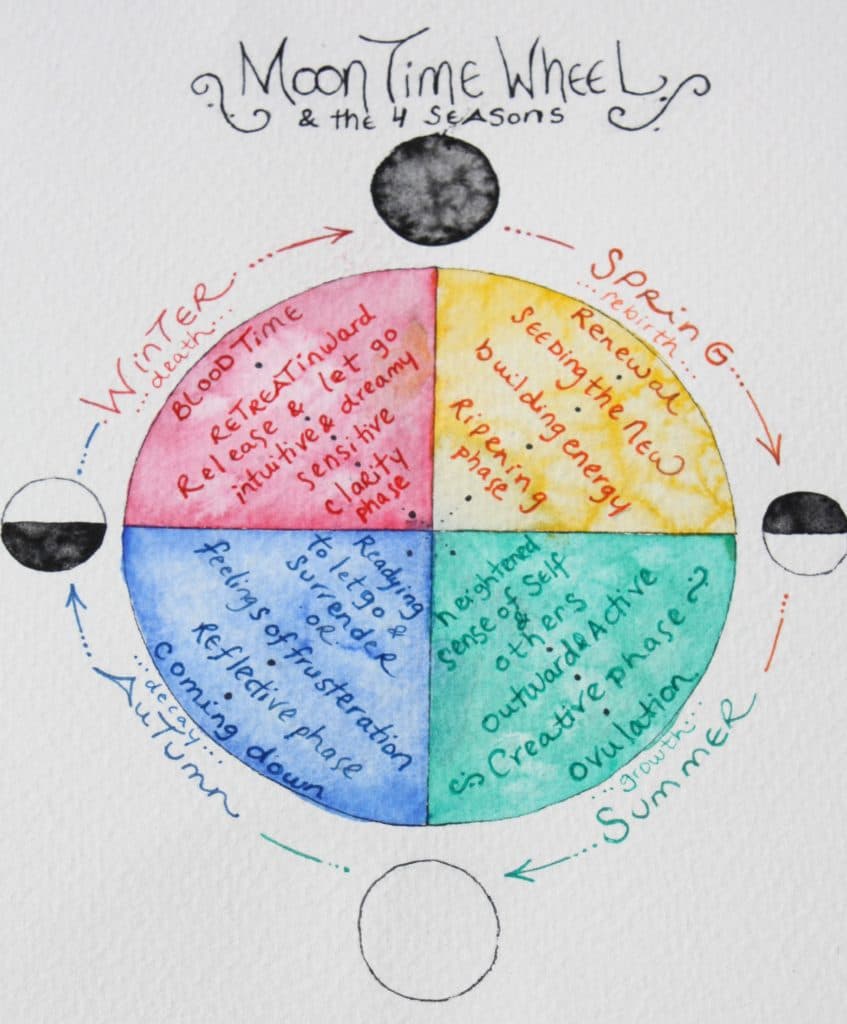 Moon Time Wheel
& the 4 Seasons
Winter
...death...
Spring
...rebirth...
Blood Time
Retreat inward
Release & let go
intuitive & dreamy
sensitive
Clarity
phase
Renewal
Seeding the new
building energy
Ripening
phase
Readying
to let go &
surrender
OR
feelings of frusteration
Reflective phase
coming down
heightened
sense of self
&
others
outward & Active
Creative phase
ovulation
...decay...
Autumn
...growth...
Summer